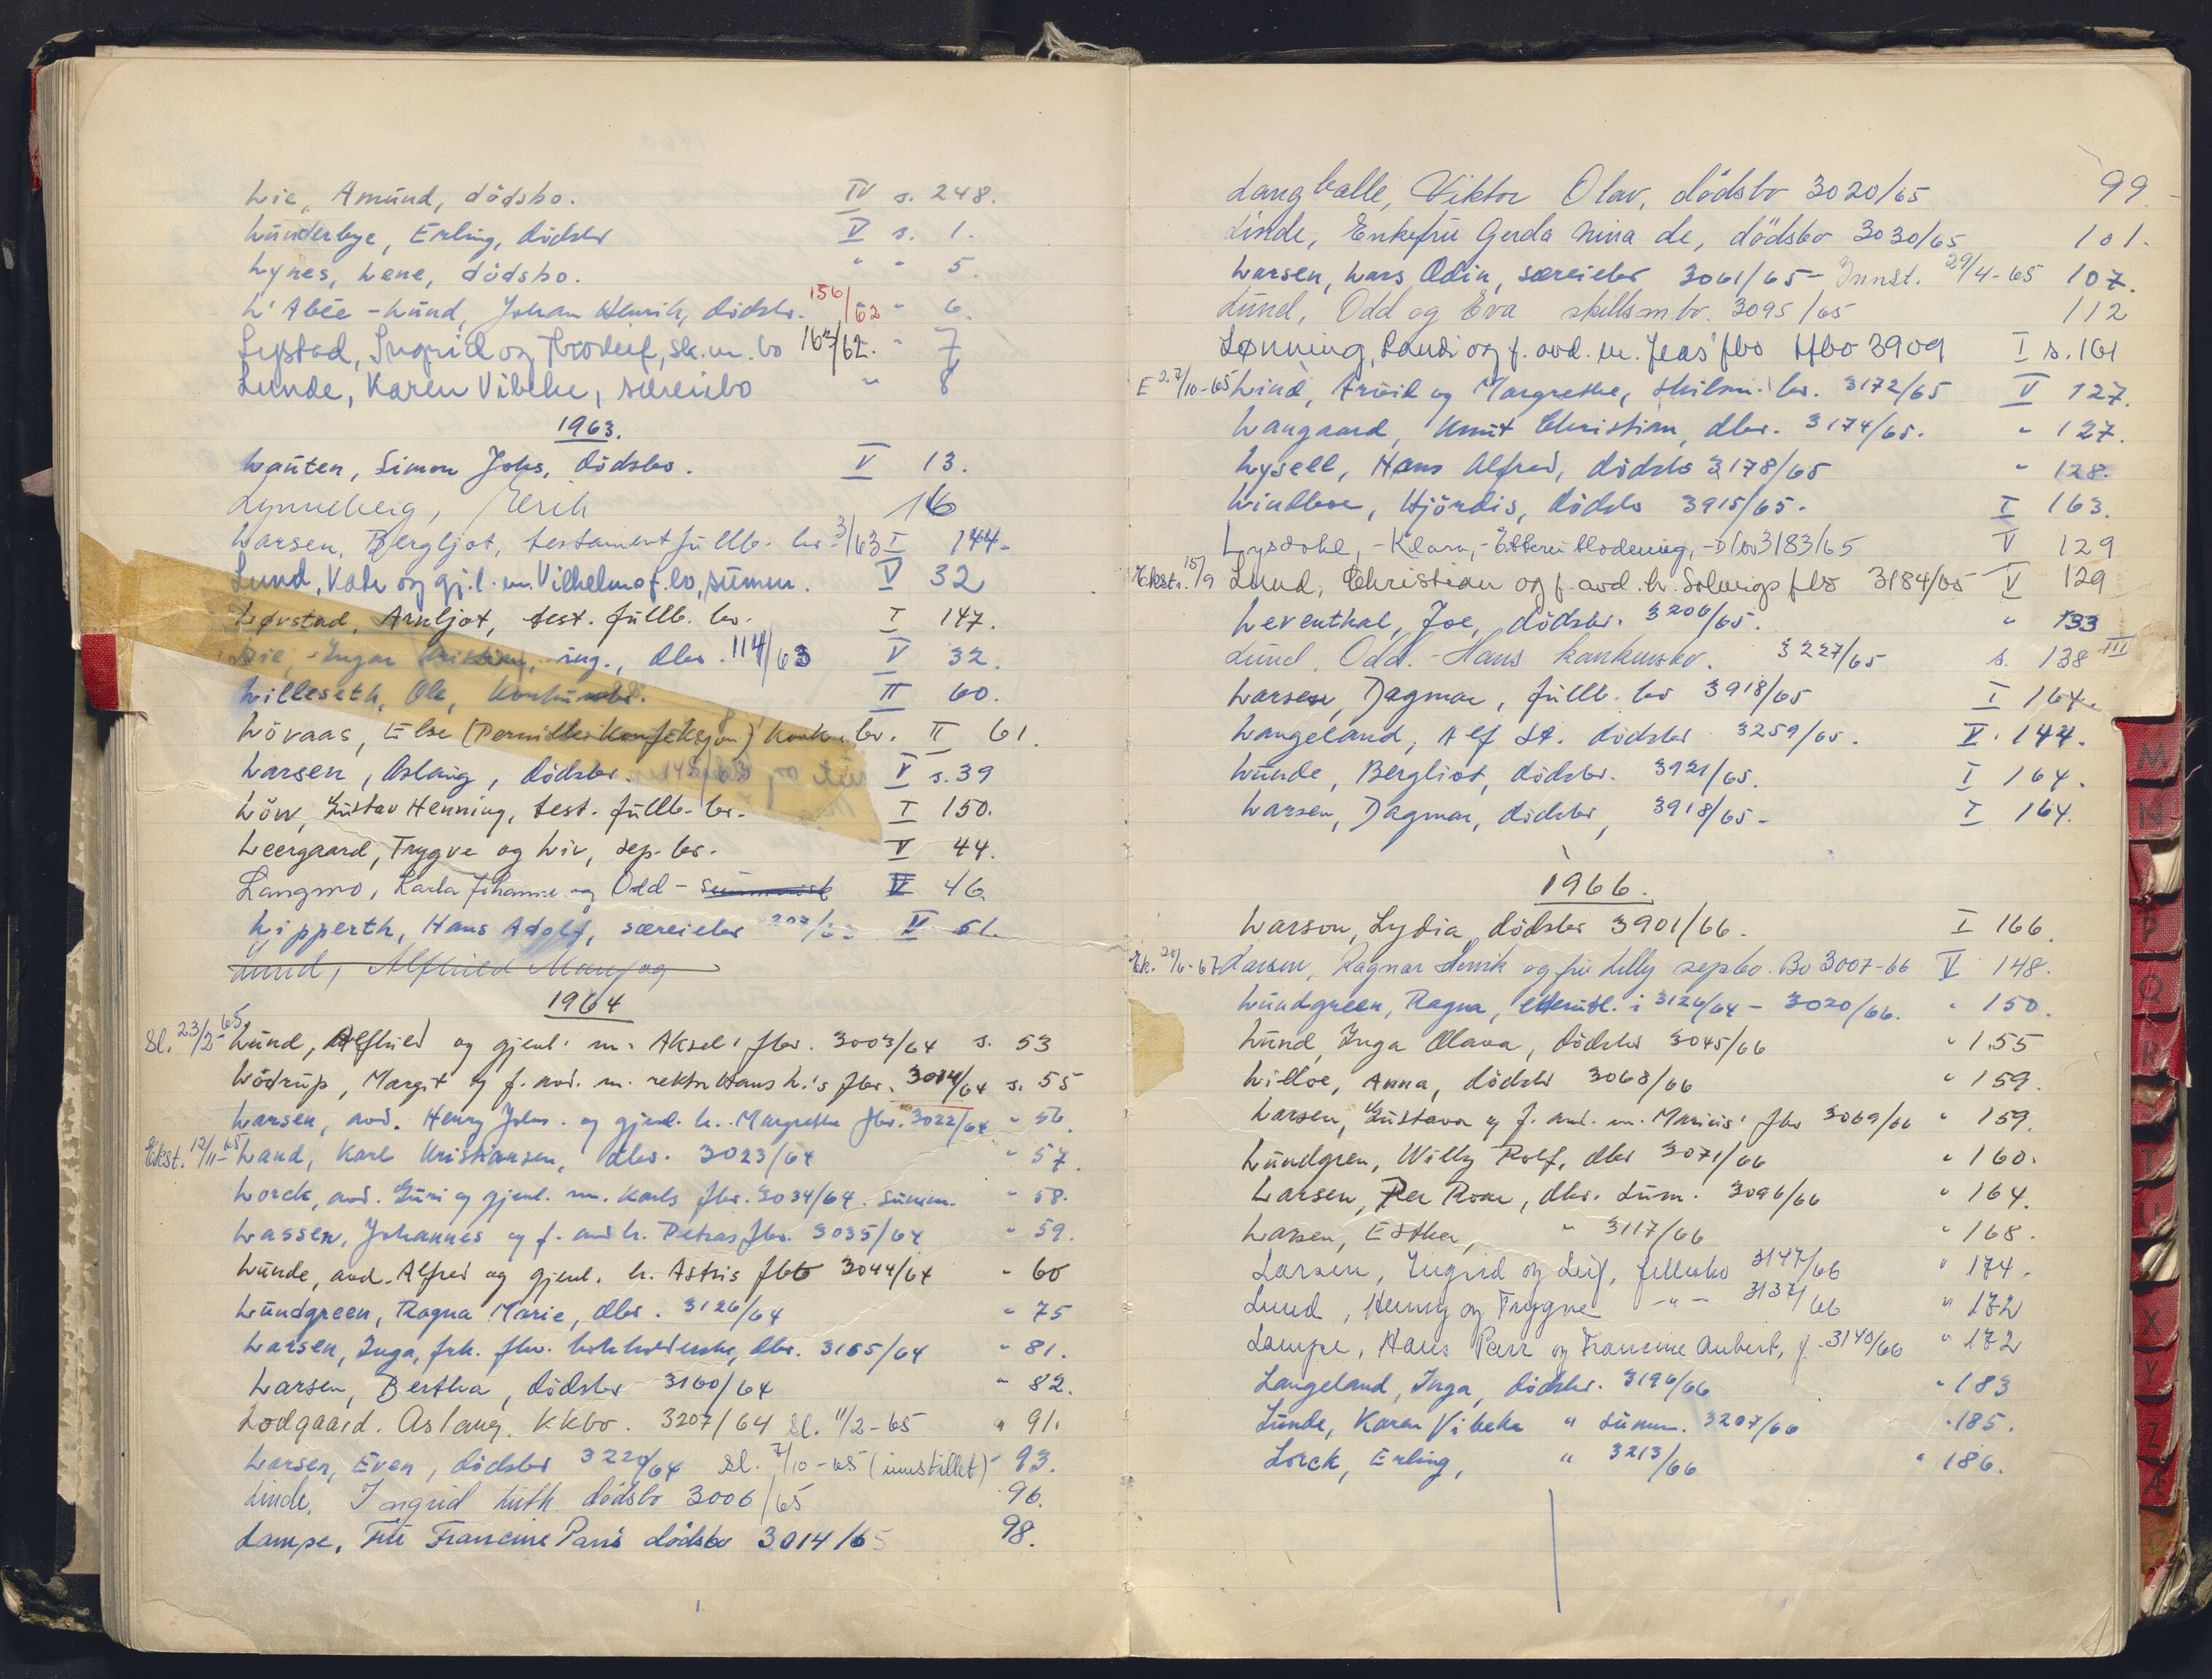 Lie, Amund, dödsbo. IV s. 248.
Lunderbye, Erling, dödsbo V s. 1.
Lynes, Lene, dödsbo. " " 5.
L'Abée-Lund, Johan Henrik, dödsbo. 156/62 " 6.
Lystad, Ingrid og Trodeif, sk.m. bo 163/62. " 7
Lunde, Karen Vibeke, særeiebo " 8
1963.
Lauten, Simon Johs, dödsbo. V 13.
Lynneberg, Erik 16
Larsen, Bergljot, testamentfullb. bo 3/63 I 144.
Lund, Vak og gj.l. m. Vilhelms f.bo, summ. V 32
Løvstad, Arnljot, test. fullb. bo. I 147.
Lie, Ingar Kristian, ing., dbo. 114/63 V 32.
Lilleseth, Ole, konkursbo. II 60.
Lövaas, Else (Pernilles Konfeksjon) konk. bo. II 61.
Larsen, Aslaug, dödsbo. V s. 39
Löw, Gustav Henning, test. fullb. bo. I 150.
Leergaard, Trygve og Liv, sep. bo. V 44.
Langmo, Karla Johanne og Odd - V 46
Lipperth, Hans Adolf, særeiebo 207/63 V 51.
Lund, Alfhild Mary og
1964
Sl. 23/2-65. Lund, Alfhild og gjenl. m. Aksels fbo. 3003/64 s. 53
Lödrup, Margit og f. avd. m. rektor Hans L.'s fbo. 3014/64 s. 55
Larsen, avd. Henry Johs. og gjenl. h. Margrethe fbo. 3022/64 " 56.
Ekst. 12/11-65 Land, Karl Kristiansen, dbo. 3023/64 " 57.
Lorck, avd. Guri og gjenl. m. Karls fbo. 3034/64. summ. " 58.
Lassen, Johannes og f. avd h. Petras fbo. 3035/64 " 59.
Lunde, avd. Alfred og gjenl. h. Astris fbo 3044/64 " 60
Lundgreen, Ragna Marie, dbo. 3126/64 " 75
Larsen, Inga, frk. fhv. bokholderske, dbo. 3155/64 " 81.
Larsen, Bertha, dödsbo 3160/64 " 82.
Lodgaard. Aslaug. kkbo. 3207/64 Sl. 11/2-65 " 91.
Larsen, Even, dödsbo 3220/64 sl. 7/10-65 (innstillet) " 93.
Linde, Ingrid Luth dödsbo 3006/65 96.
Lampe, Fru Francine Paris dödsbo 3014/65 98.
Langballe, Viktor Olav, dödsbo 3020/65 99.
Linde, Enkefru Gerda Nina de, dödsbo 3030/65 101.
Larsen, Lars Odin, særeiebo 3061/65 - Innst. 29/4-65 107.
Lund, Odd og Eva skillsm.bo. 3095/65 112
Lønning, Randi og f. avd. m. Jens' fbo Hbo 3909 I s. 161
E 27/10-65 Lind, Arvid og Margrethe, skilsm. bo. 3172/65 V 127.
Langaard, Knut Christian, dbo. 3174/65. " 127.
Lysell, Hans Alfred, dödsbo 3178/65 " 128.
Lindboe, Hjördis, dödsbo 3915/65. I 163.
Lysdahl, - Klara, - Etterutlodning, - D/bo 3183/65 V 129
Ekstr. 15/9 Lund, Christian og f. avd. h. Solveigs fbo 3184/65 V 129
Leventhal, Joe, dödsbo. 3206/65. " 133
Lund, Odd. - Hans konkursbo. 3227/65 s. 138 III
Larsen, Dagmar, fullb. bo 3918/65 I 164.
Langeland, Alf St. dödsbo 3259/65. V. 144.
Lunde, Bergliot, dödsbo. 3921/65. I 164.
Larsen, Dagmar, dödsbo, 3918/65 - I 164.
1966.
Larson, Lydia, dödsbo 3901/66. I 166.
Ek. 20/6-67 Larsen, Ragnar Henrik og fru Lilly sepbo. Bo 3007-66 V 148.
Lundgreen, Ragna, etterutl. i 3126/64 - 3020/66. " 150.
Lund, Inga Olava, dödsbo 3045/66 " 155
Lilloe, Anna, dödsbo 3068/66 " 159.
Larsen, Gustava og f. avd. m. Marius' fbo 3069/66 " 159.
Lundgren, Willy Rolf, dbo 3071/66 " 160.
Larsen, Per Roar, dbo. sum. 3096/66 " 164.
Larsen, Esther, " 3117/66 " 168.
Larsen, Ingrid og Leif, fellesbo 3147/66 " 174.
Lund, Henny og Trygve - " - 3137/66 " 172
Lampe, Hans Parr og Francine Aubert, f. 3140/66 " 172
Langeland, Inga, dödsbo. 3196/66 " 183
Lunde, Karen Vibeke " summ. 3207/66 " 185.
Lorck, Erling, " 3213/66 " 186.
M
N
P
Q
R
T
U
X
Y
Z
Æ